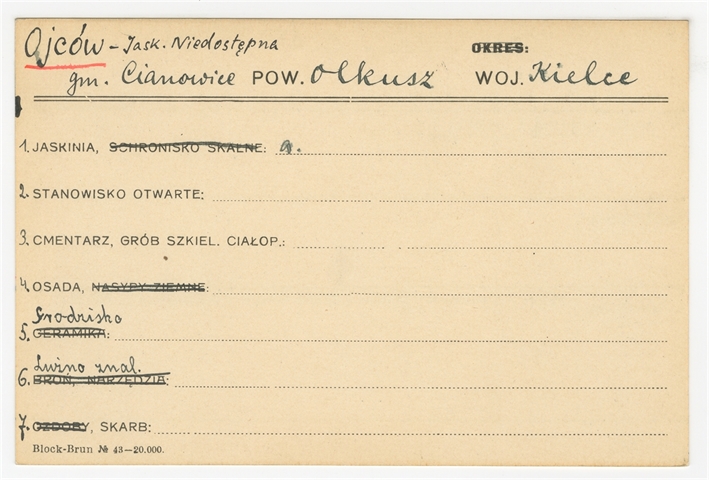 Ojców - Jask. Niedostępna
OKRES:
gm. Cianowice POW. Olkusz WOJ. Kielce
1. JASKINIA, SCHRONISKO SKALNE: a.
2. STANOWISKO OTWARTE:
3. CMENTARZ, GRÓB SZKIEL. CIAŁOP.:
4. OSADA, NASYPY ZIEMNE:
Grodzisko
5. CERAMIKA:
Luźno znal.
6. BROŃ, NARZĘDZIA:
7. OZDOBY, SKARB:
Block-Brun № 43—20.000.